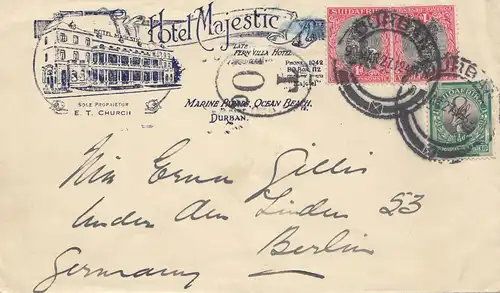 Hotel Majestic
LATE
FERN VILLA HOTEL
PHONE 1042
P.O. BOX 112
SOLE PROPRIETOR
E. T. CHURCH
MARINE PARADE, OCEAN BEACH,
DURBAN.
SUIDAFRIKA
DURBAN
Miss Erna Gillis
Unter den Linden 53
Berlin
Germany